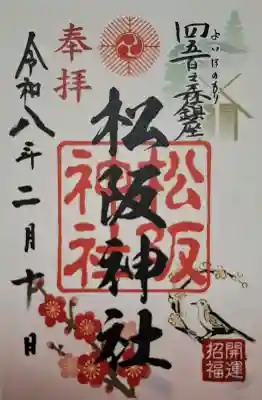 四五百之森鎮座
よいほのもり
奉拝
松阪神社
松阪神社
令和八年二月十八日
開運招福